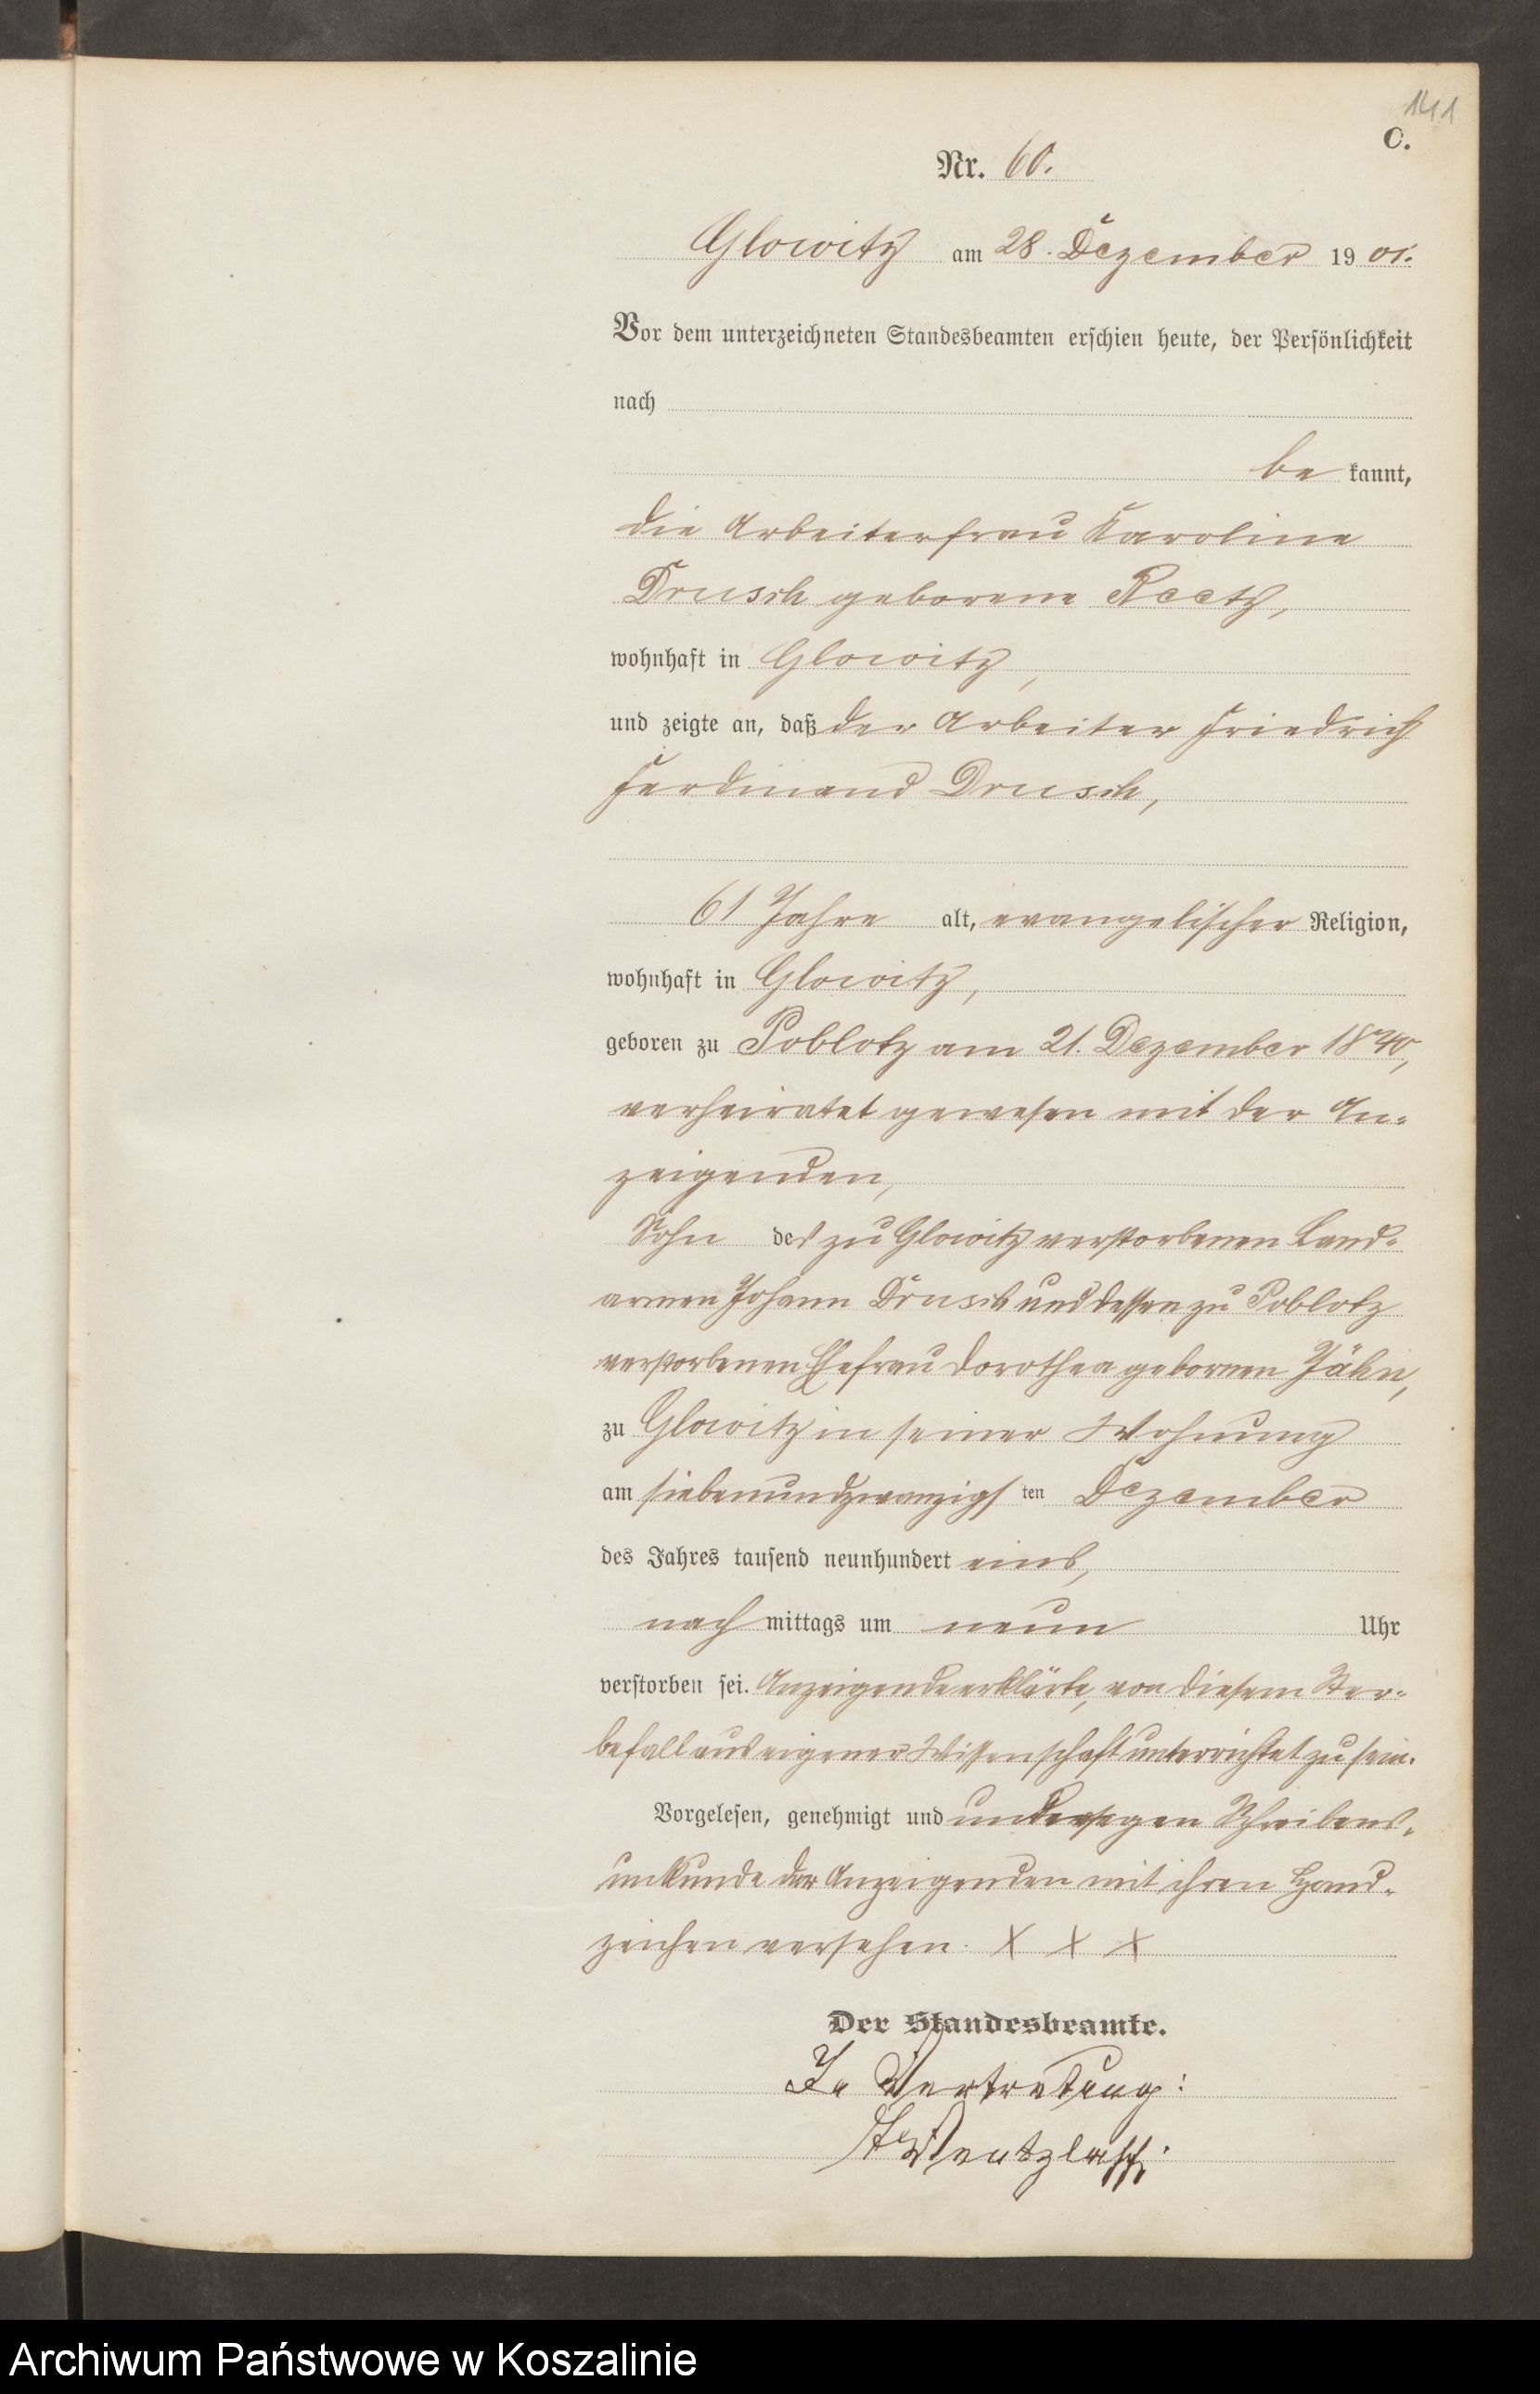 141
C.
Nr. 60.
Glowitz am 28. Dezember 1901.
Vor dem unterzeichneten Standesbeamten erschien heute, der Persönlichkeit
nach
be kannt,
die Arbeiterfrau Karoline
Drusch geborene Reetz,
wohnhaft in Glowitz,
und zeigte an, daß der Arbeiter Friedrich
Ferdinand Drusch,
61 Jahre alt, evangelischer Religion,
wohnhaft in Glowitz,
geboren zu Poblotz am 21. Dezember 1840,
verheiratet gewesen mit der An-
zeigenden,
Sohn des zu Glowitz verstorbenen Land-
armen Johann Drusch und dessen zu Poblotz
verstorbenen Ehefrau Dorothea gebornen
zu Glowitz in seiner Wohnung
am siebenundzwanzigsten Dezember
des Jahres tausend neunhundert eins,
nach mittags um neun Uhr
verstorben sei. Anzeigende erklärte, von diesem Ster-
befall aus eigener Wissenschaft unterrichtet zu sein.
Vorgelesen, genehmigt und und wegen Schreibens-
unkunde der Anzeigenden mit ihren Hand-
zeichen versehen. X X X
Der Standesbeamte.
In Vertretung:
Archiwum Państwowe w Koszalinie